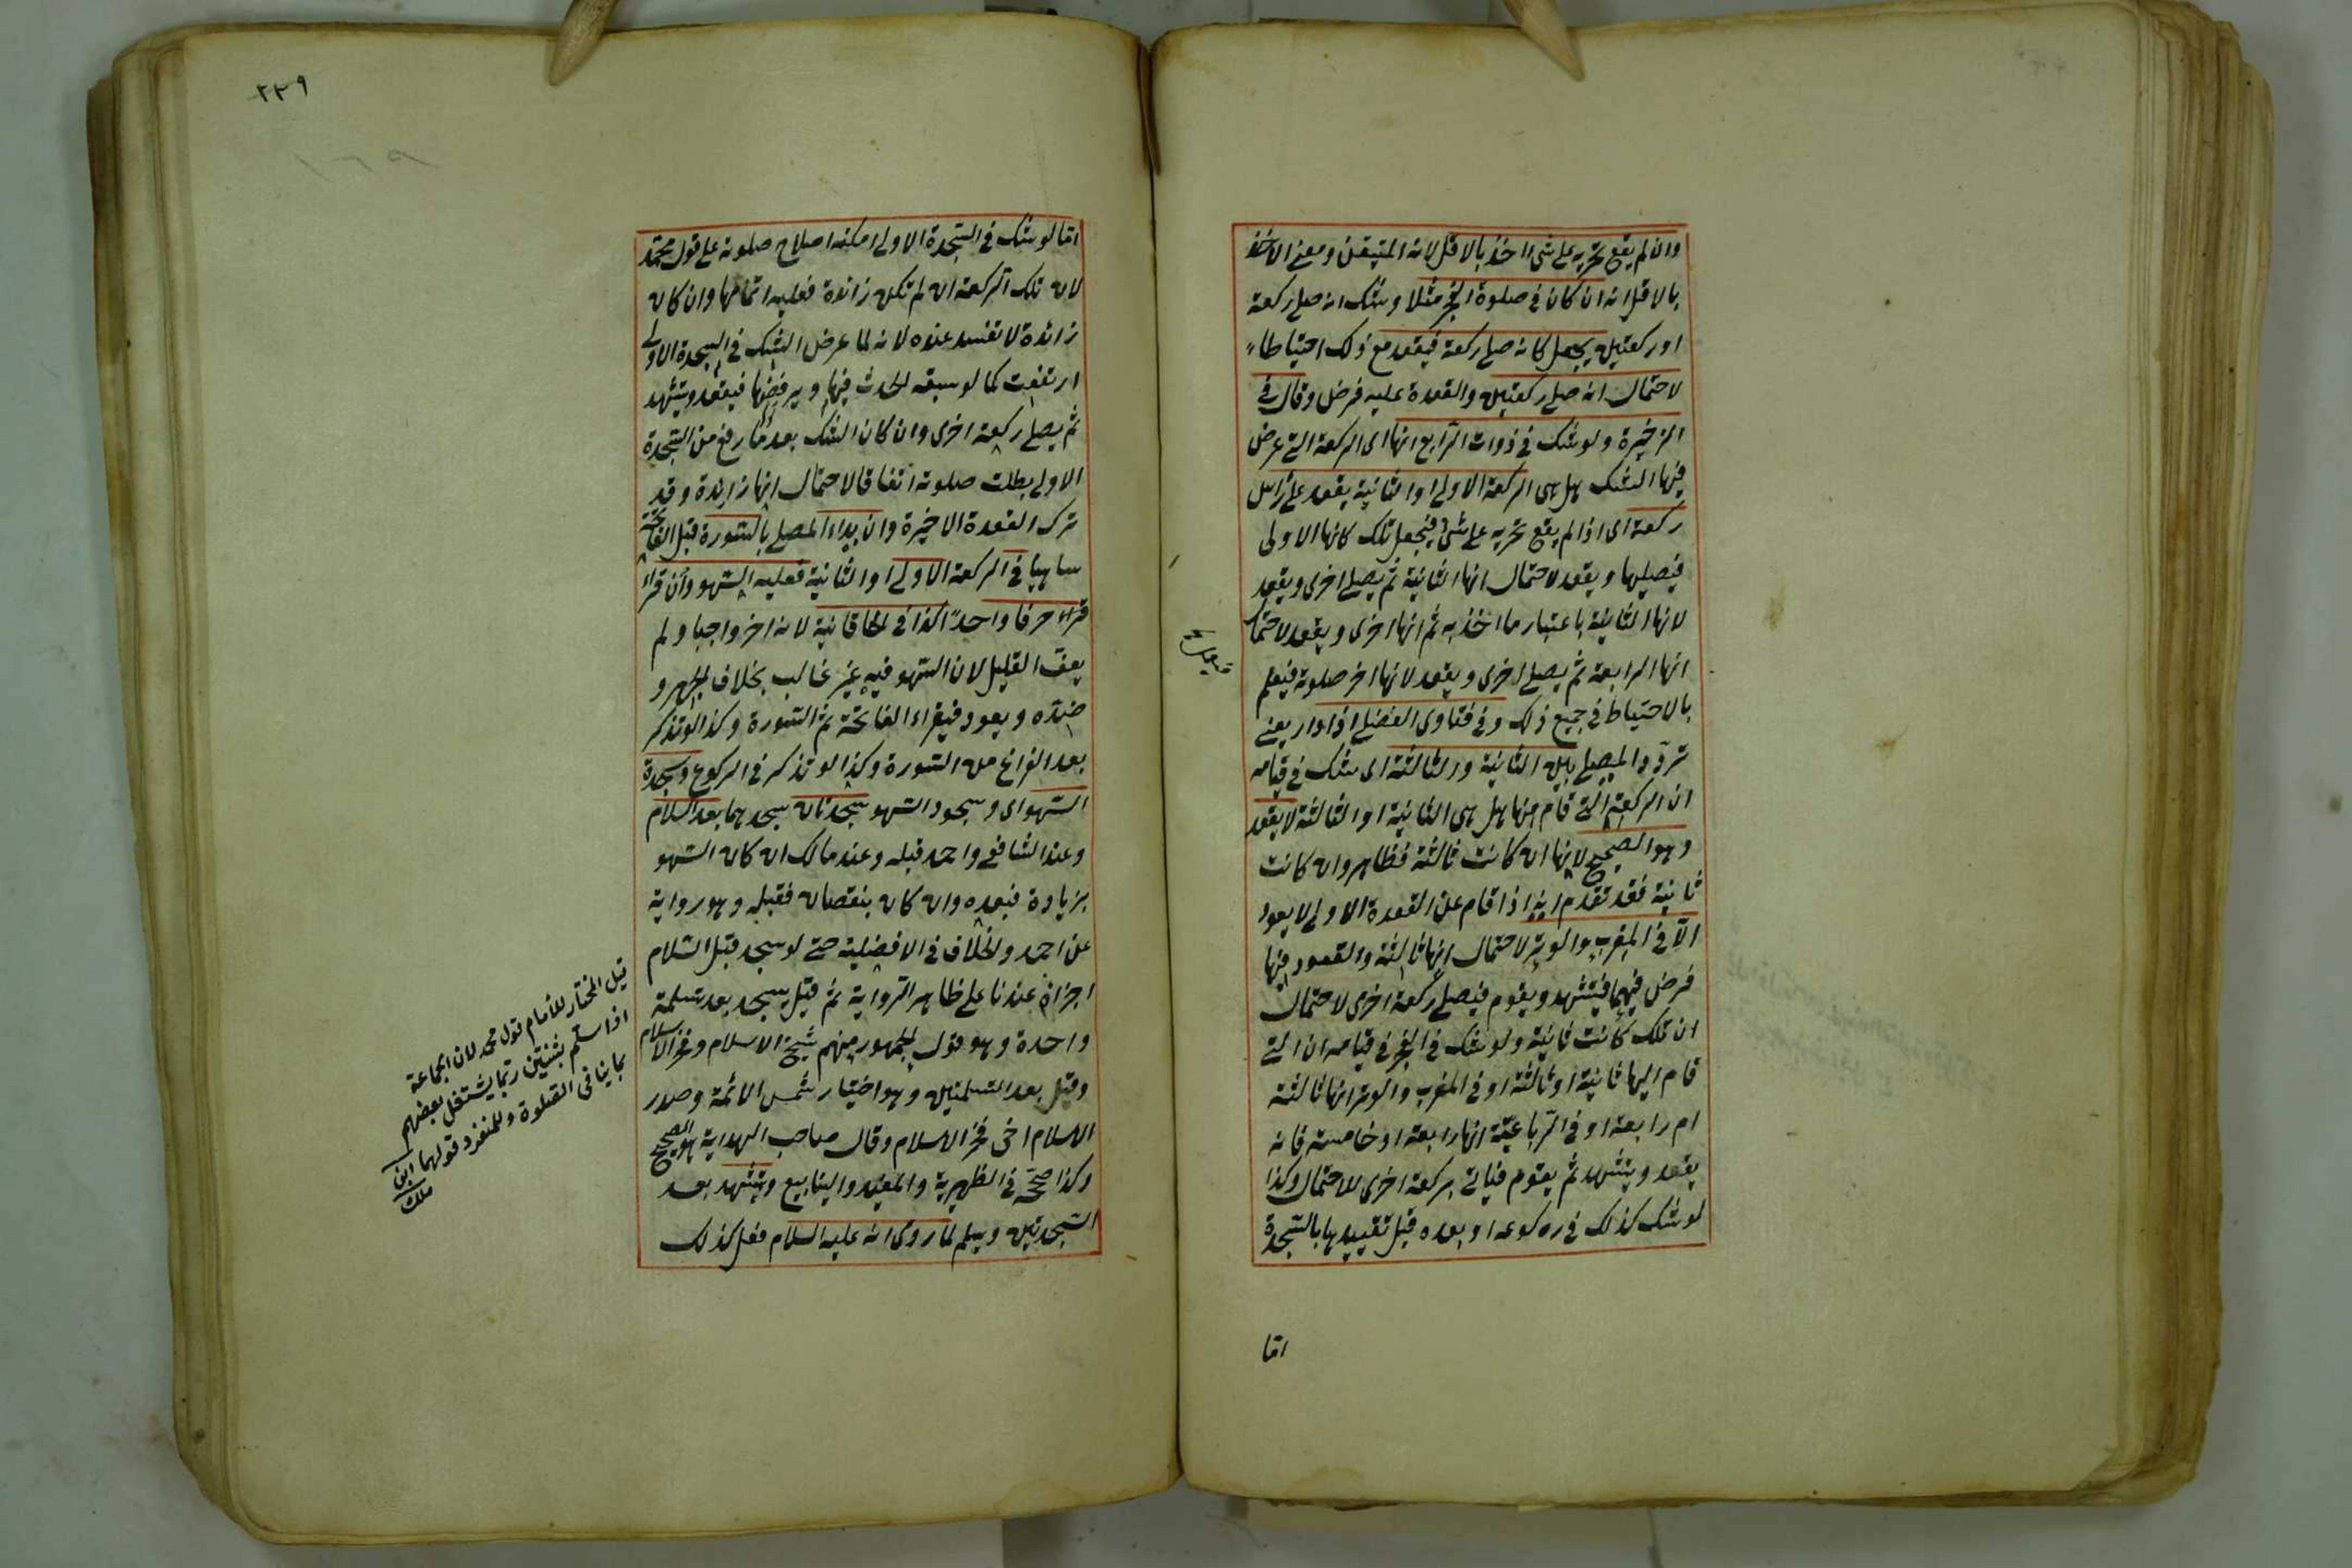 وان لم يقع تحريه على شئ اخذ بالاقل لانه المتيقن ومعنى الاخذ
بالاقل انه ان كان فى صلوة الفجر مثلا وشك انه صلى ركعة
او ركعتين يجعل كانه صلى ركعة فيقعد مع ذلك احتياطا
لاحتمال انه صلى ركعتين والقعدة عليه فرض وقال فى
الذخيرة ولو شك فى ذوات الرّابع انها اى الركعة التى عرض
فيها الشك هل هى الركعة الاولى او الثانية يقعد على رأس
ركعة اى اذا لم يقع تحريه على شئ فيجعل تلك كانها الاولى
فيصليها ويقعد لاحتمال انها الثانية ثم يصلى اخرى ويقعد
لانها الثانية باعتبار ما اخذ به ثم انها اخرى ويقعد لاحتمال
انها الرابعة ثم يصلى اخرى ويقعد لانها اخر صلوته فيعلم
فيعمل صح
بالاحتياط فى جميع ذلك وفى فتاوى الفضلى اذا دار يعنى
تردّد المصلى بين الثانية والثالثة اى شك فى قيامه
ان الركعة التى قام منها هل هى الثانية او الثالثة لا يقعد
وهو الصحيح لانها ان كانت ثالثة فظاهر وان كانت
ثانية فقد تقدم انه اذا قام عن القعدة الاولى لا يعود
الّا فى المغرب والوتر لاحتمال انها ثالثة والقعود فيها
فرض فيهما فيتشهد ويقوم فيصلى ركعة اخرى لاحتمال
ان تلك كانت ثانية ولو شك فى الفجر فى قيامه ان التى
قام اليها ثانية او ثالثة او فى المغرب والوتر انها ثالثة
ام رابعة او فى الرّباعيّة انها رابعة او خامسة فانه
يقعد ويتشهد ثم يقوم فياتى بركعة اخرى للاحتمال وكذا
لو شك كذلك فى ركوعه او بعده قبل تقييدها بالسّجدة
امّا
٢٣٩
١٦٩
امّا لو شك فى السّجدة الاولى امكنه اصلاح صلوته على قول محمّد
لان تلك الرّكعة ان لم تكن زائدة فعليه اتمامها وان كان
زائدة لا تفسد عنده لانه لما عرض الشك فى السجدة الاولى
ارتفعت كما لو سبقه الحدث فيها ويرفضها فيقعد ويتشهد
ثم يصلى ركعة اخرى وان كان الشك بعد ما رفع من السّجدة
الاولى بطلت صلوته اتفاقا لاحتمال انها زائدة وقد
ترك القعدة الاخيرة وان بداء المصلى بالسّورة قبل الفاتحة
ساهيا فى الركعة الاولى او الثانية فعليه السّهو وان قراء
قراء حرفا واحدًا كذا فى الخاقانية لانه اخر واجبا ولم
يعف القليل لان السّهو فيه غير غالب بخلاف الجهر و
ضدّه ويعود فيقراء الفاتحة ثم السّورة وكذا لو تذكر
بعد الفراغ من السّورة وكذا لو تذكر فى الركوع وسجدة
السّهو اى وسجود السّهو سجدتان يسجدهما بعد السّلام
وعند الشافعى واحمد قبله وعند مالك ان كان السّهو
بزيادة فبعده وان كان بنقصان فقبله وهو رواية
عن احمد والخلاف فى الافضلية حتى لو سجد قبل السّلام
اجزاه عندنا على ظاهر الرّواية ثم قيل يسجد بعد تسليمة
واحدة وهو قول الجمهور منهم شيخ الاسلام وفخر الاسلام
وقيل بعد التسلمتين وهو اختيار شمس الائمة وصدر
الاسلام اخى فخر الاسلام وقال صاحب الهداية هو الصحيح
وكذا صحّحه فى الظهيرية والمفيد والينابيع ويتشهد بعد
السّجدتين ويسلم لما روى انه عليه السلام فعل كذلك
قيل المختار للامام قول محمد لان الجماعة
اذا سلّم بثنتين ربّما يشتغل بعضهم
بما ينافى الصّلوة وللمنفرد قولهما ابن
ملك